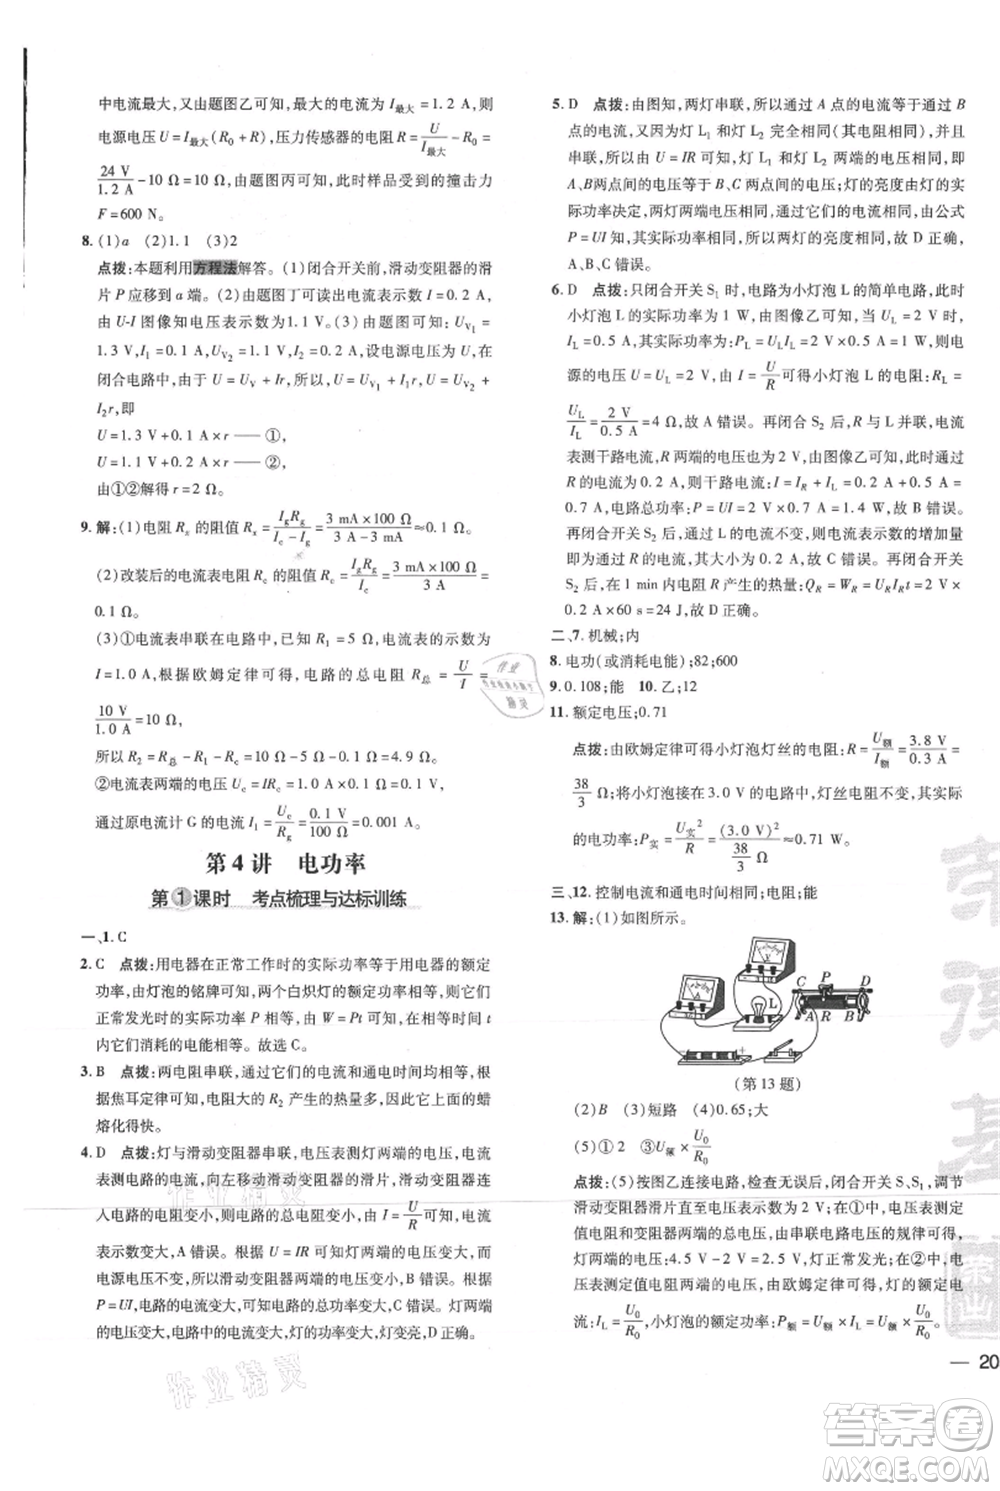 中电流最大,又由题图乙可知,最大的电流为 I最大=1.2 A,则
电源电压 U=I最大(R₀+R),压力传感器的电阻 R=U/I最大−R₀=
24 V/1.2 A−10 Ω=10 Ω,由题图丙可知,此时样品的撞击力
F=600 N。
8. (1)a (2)1.1 (3)2
点拨:本题利用方程法解答。(1)闭合开关前,滑动变阻器的滑
片 P 应移到 a 端。(2)由题图丁可读出电流表示数 I=0.2 A,
由 U-I 图像知电压表示数为1.1 V。(3)由题图可知,U_V1=
1.3 V,I₁=0.1 A,U_V2=1.1 V,I₂=0.2 A,设电源电压为 U,在
闭合电路中,由于 U=U_V+Ir,所以,U=U_V1+I₁r,U=U_V2+
I₂r,即
U=1.3 V+0.1 A×r ——①,
U=1.1 V+0.2 A×r ——②,
由①②解得 r=2 Ω。
9. 解:(1)电阻 Rx 的阻值 Rx=IgRg/(Ic−Ig)=(3 mA×100 Ω)/(3 A−3 mA)≈0.1 Ω。
(2)改装后的电流表电阻 Rc 的阻值 Rc=IgRg/Ic=(3 mA×100 Ω)/3 A=
0.1 Ω。
(3)①电流表串联在电路中,已知 R₁=5 Ω,电流表的示数为
1.0 A,根据欧姆定律可得,电路的总电阻 R总=U/I=
10 V/1.0 A=10 Ω,
所以 R₂=R总−R₁−Rc=10 Ω−5 Ω−0.1 Ω=4.9 Ω。
②电流表两端的电压 Uc=IRc=1.0 A×0.1 Ω=0.1 V,
通过原电流计 G 的电流 I₁=Uc/Rg=0.1 V/100 Ω=0.001 A。
第4讲 电功率
第1课时 考点梳理与达标训练
一、1. C
2. C 点拨:用电器在正常工作时的实际功率等于用电器的额定
功率,由灯泡的铭牌可知,两个白炽灯的额定功率相等,则它们
正常发光时的实际功率 P 相等,由 W=Pt 可知,在相等的时间 t
内它们消耗的电能相等。故选 C。
3. B 点拨:两电阻串联,通过它们的电流和通电时间相等,根
据焦耳定律可知,电阻大的 R₂ 产生的热量多,会使更多的蜡
熔化得快。
4. D 点拨:灯与滑动变阻器串联,电压表测灯两端的电压,电流
表测电路的电流,向右移动滑动变阻器的滑片,滑动变阻器连
入电路的电阻变小,则电路的总电阻变小,由 I=U/R可知,电流
表示数变大,A 错误。由 U=IR 可知灯两端的电压变大,而
电源电压 U 不变,所以滑动变阻器两端的电压变小,B 错误。由
P=UI,电路的电流变大,可知电路的总功率变大,C 错误。灯两端
的电压变大,电路中的电流变大,则灯的功率变大,灯变亮,D 正确。
5. D 点拨:由图知,两灯串联,所以通过 A 点的电流等于通过 B
点的电流,又因为灯 L₁ 和灯 L₂ 完全相同(其电阻相同),并且
串联,所以由 U=IR 可知,灯 L₁ 和灯 L₂ 两端的电压相等,即
A、B 两点间的电压等于 B、C 两点间的电压;灯的亮度由灯的
实际功率决定,两灯的电压相等,通过它们的电流也相等,由公式
P=UI 知,其实际功率相等,所以两灯的亮度相等,故 D 正确,
A、B、C 错误。
6. D 点拨:只闭合开关 S₁ 时,电路为小灯泡 L 的简单电路,已知
小灯泡 L 的实际功率为 1 W,由图像乙可知,当 U_L=2 V 时,
I_L=0.5 A,此时功率:P_L=U_LI_L=2 V×0.5 A=1 W,则此时电
源的电压 U=U_L=2 V,由 I=U/R可得小灯泡 L 的电阻:R_L=
U_L/I_L=2 V/0.5 A=4 Ω,故 A 错误。再闭合 S₂ 后,R 与 L 并联,电流
表测干路电流,R 两端的电压为 2 V,由图像乙可知,此时通过
R 的电流为 0.2 A,则干路电流:I=I_R+I_L=0.2 A+0.5 A=
0.7 A,所以,电路的总功率:P=UI=2 V×0.7 A=1.4 W,故 B 错误。
再闭合开关 S₂ 后,通过 L 的电流不变,则电流表示数的增加量
即为通过 R 的电流,其大小为 0.2 A,故 C 错误。再闭合开关
S₂ 后,通电 1 min 内电阻 R 产生的热量:Q_R=W_R=U_RI_Rt=2 V×
0.2 A×60 s=24 J,故 D 正确。
二、7. 机械;内
8. 电功(或消耗电能);82;600
9. 0.108;能 10. 乙;12
11. 额定电压;0.71
点拨:由欧姆定律可得小灯泡灯丝的电阻:R=U额/I额=3.8 V/0.3 A=
38/3 Ω;将小灯泡接在 3.0 V 的电路中,灯丝电阻不变,其实际
的电功率:P实=U实²/R=(3.0 V)²/(38/3 Ω)≈0.71 W。
三、12. 控制电流和通电时间相同;电阻;能
13. 解:(1)如图所示。
V
A
L
C P D
A R B
− +
(第 13 题)
(2)B (3)短路 (4)0.65;大
(5)①2 ③U额×U₀/R₀
点拨:(5)按图乙连接电路,检查无误后,闭合开关 S、S₁,调节
滑动变阻器滑片直至电压表示数为 2 V,在①中,电压表测
定值电阻和滑动变阻器两端的总电压,由串联电路的规律可得,
灯两端的电压:4.5 V−2 V=2.5 V,灯正常发光;在②中,电
压表测定值电阻两端的电压,由欧姆定律可得,灯的额定电
流:I_L=U₀/R₀,小灯泡的额定功率:P额=U额×I_L=U额×U₀/R₀。
— 20
作业精灵
作业精灵
答案圈
MXQE.COM